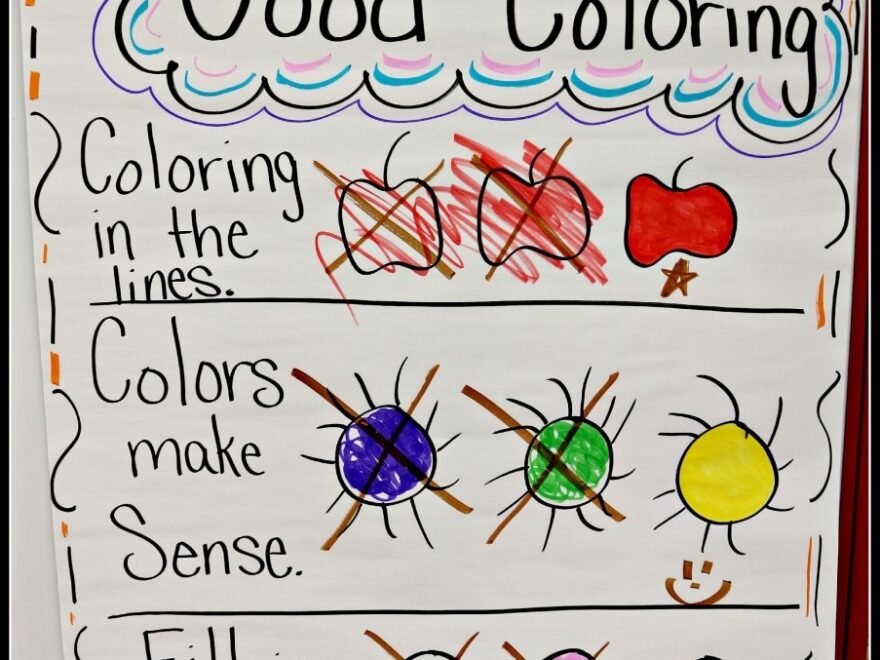 Good Coloring
Coloring
in the
lines.
Colors
make
Sense.